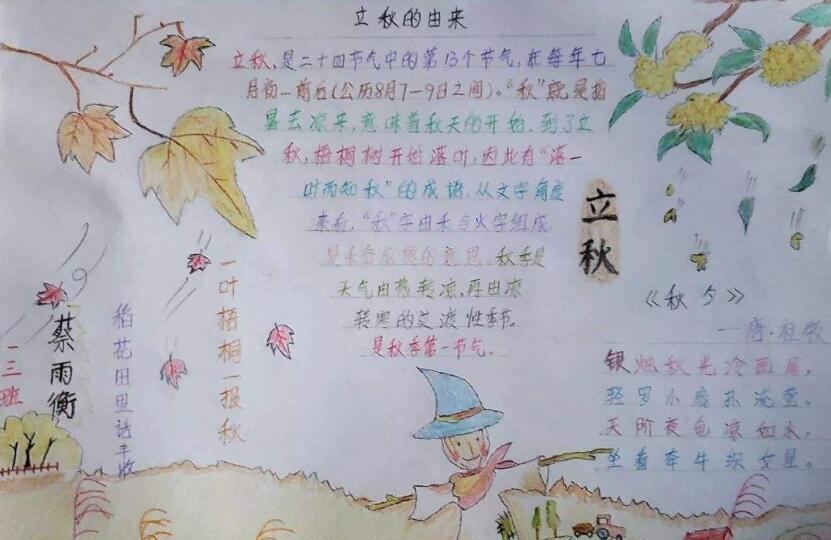 立秋的由来
立秋,是二十四节气中的第13个节气,在每年七
月初一前后(公历8月7-9日之间)。"秋"就是指
暑去凉来,意味着秋天的开始。到了立
秋,梧桐树开始落叶,因此有"落一
叶而知秋"的成语。从文字角度
来看,"秋"字由禾与火字组成,
是禾谷成熟的意思。秋季是
天气由热转凉,再由凉
转寒的交渡性季节。
是秋季第一节气。
立秋
《秋夕》
一唐·杜牧
银烛秋光冷画屏,
轻罗小扇扑流萤。
天阶夜色凉如水,
坐看牵牛织女星。
一叶梧桐一报秋
稻花田里话丰收
蔡雨衡
一三班